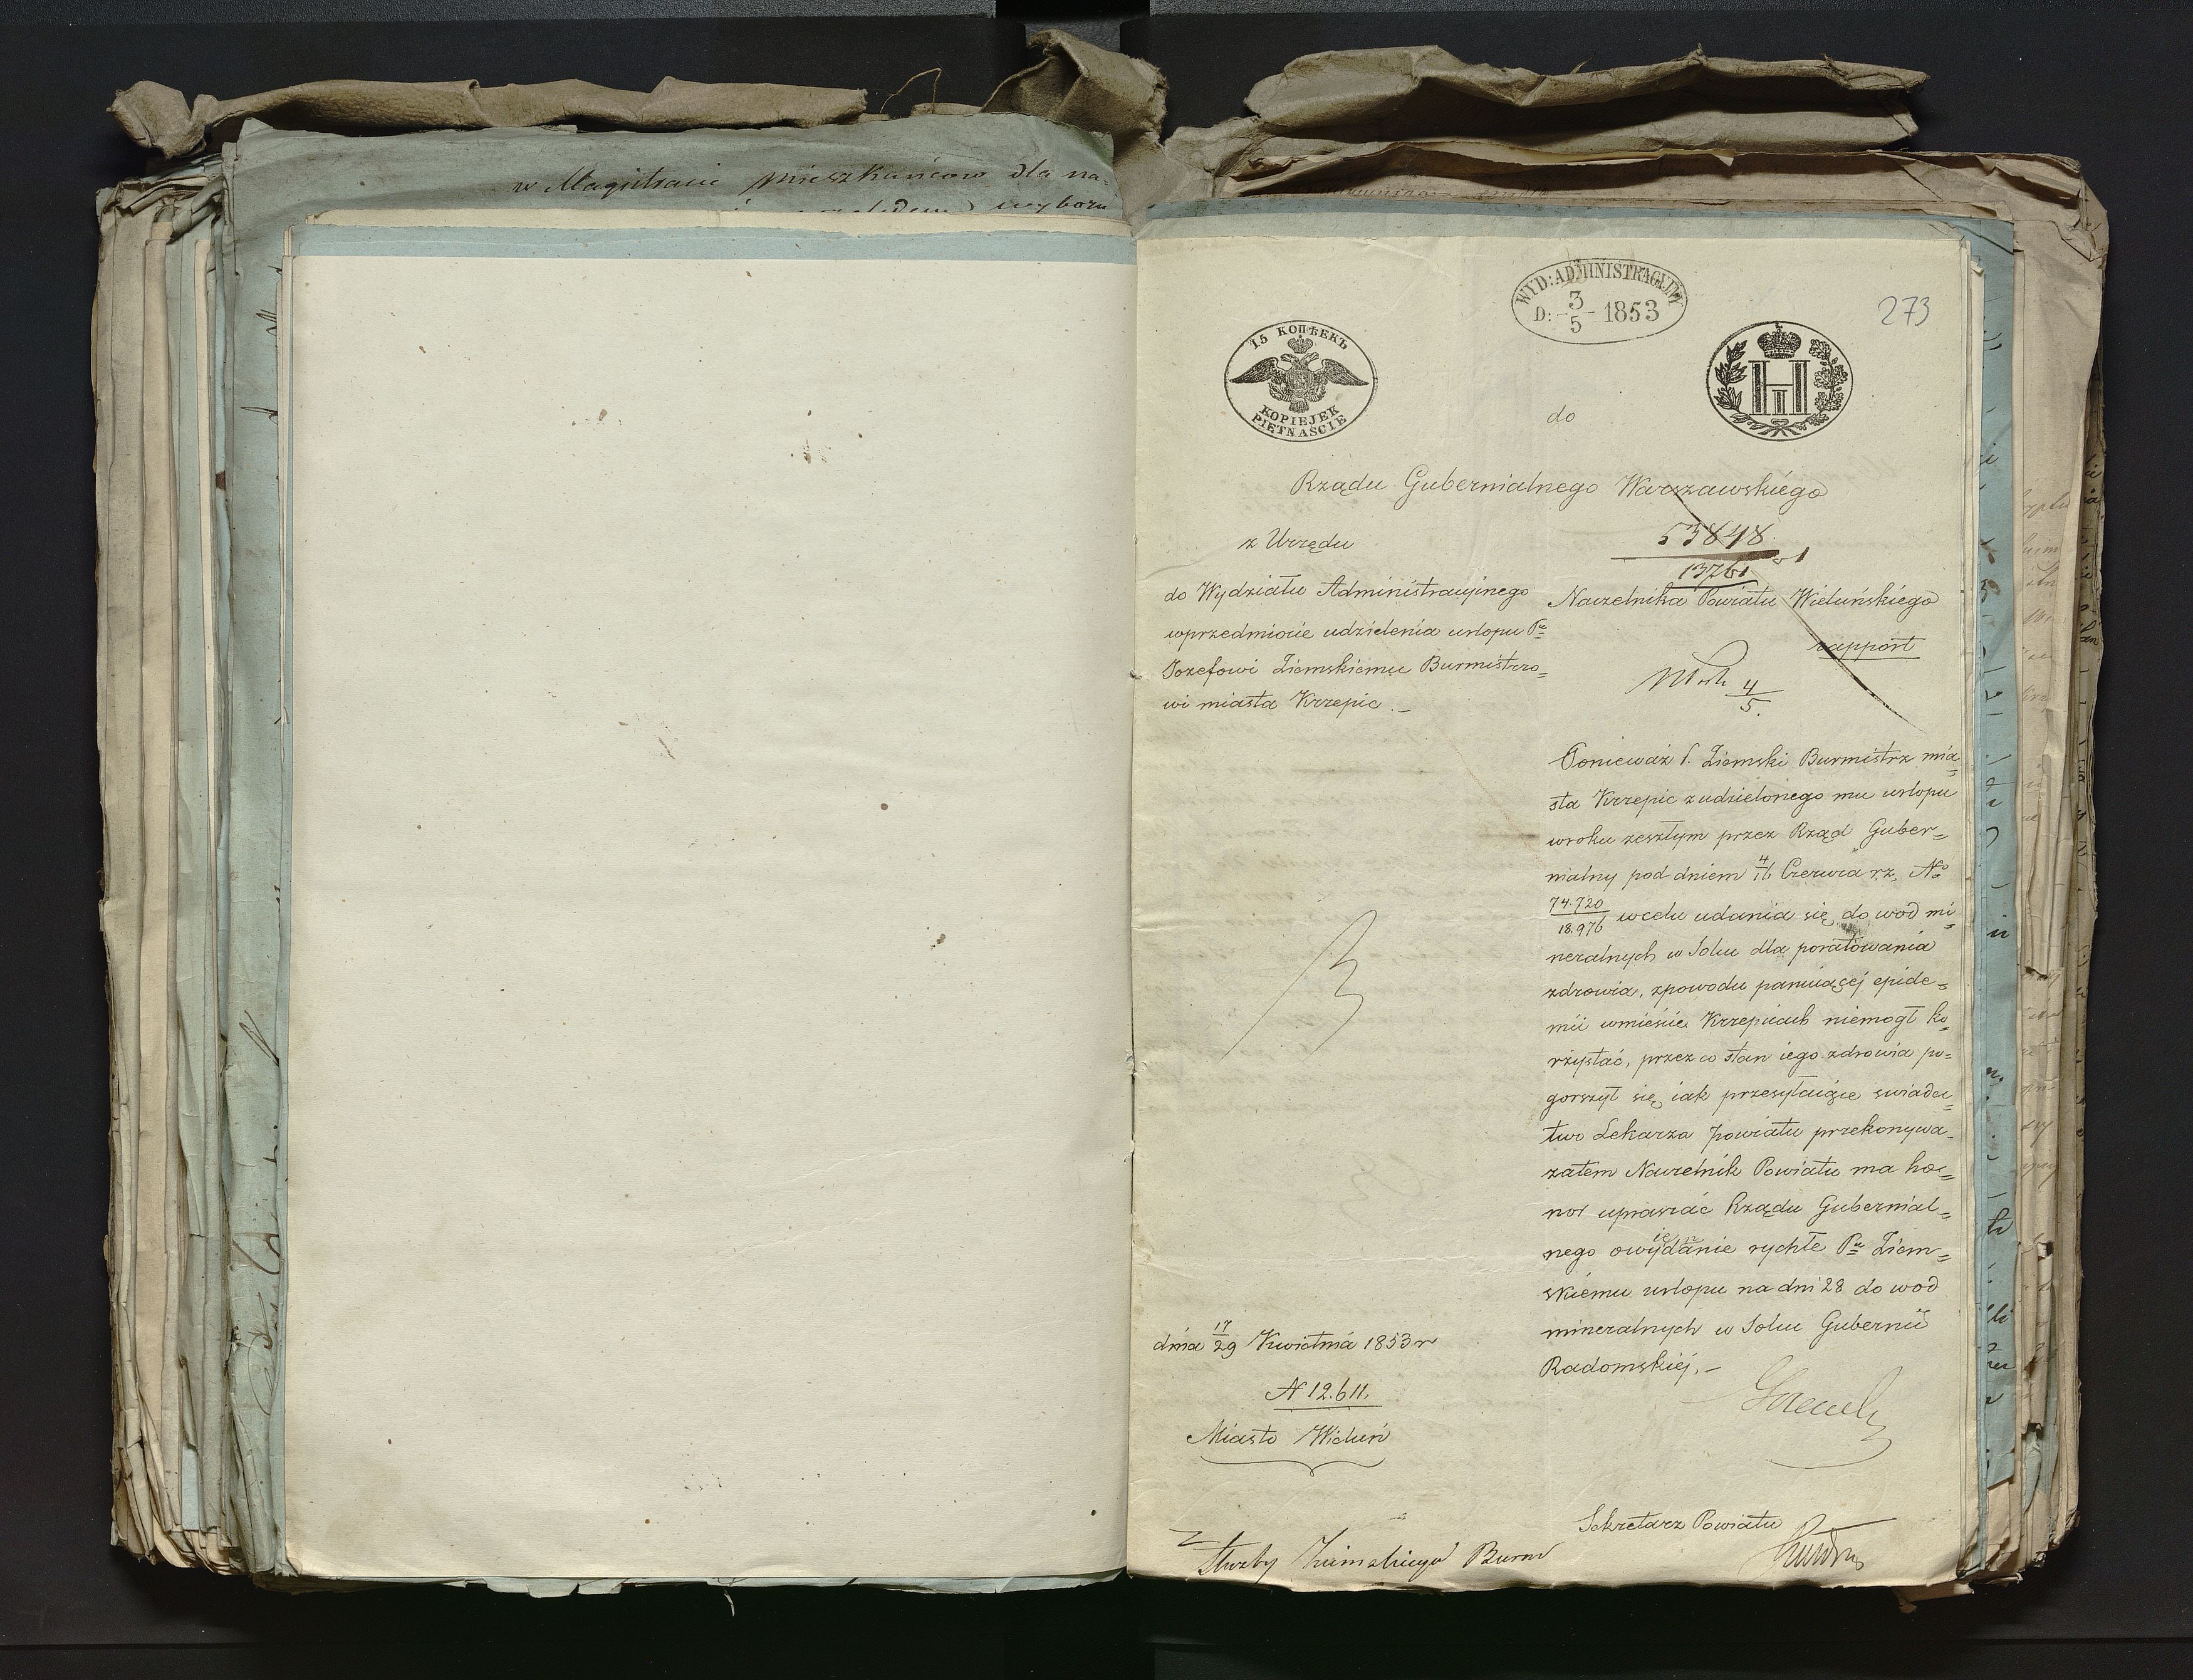 w Magistracie mieszkańców dla na=
względem wyboru
WYD: ADMINISTRACYJNY
D: 3/5 - 1853
273
15 КОПѢЕКЪ
KOPIEJEK
PIĘTNAŚCIE
H I
do
Rządu Gubernialnego Warszawskiégo
z Urzędu
53848
13761
do Wydziału Administracyinego
wprzedmiocie udzielenia urlopu Pu
Jozefowi Ziemskiemu Burmistrzo=
wi miasta Krzepic. –
Naczelnika Powiatu Wieluńskiégo
rapport
4/5.
Ponieważ P. Ziemski Burmistrz mia=
sta Krzepic z udzielonego mu urlopu
wroku zeszłym przez Rząd Guber=
nialny pod dniem 4/16 Czerwca r.z. No
74.720/18.976 wcelu udania się do wod mi=
neralnych w Solcu dla poratowania
zdrowia, zpowodu panuiącéj epide=
mii wmieście Krzepicach niemogł ko=
rzystać, przez co stan iego zdrowia po=
gorszył się iak przesyłaiące swiadec=
two Lekarza powiatu przekonywa
zatem Naczelnik Powiatu ma ho=
nor upraszać Rządu Gubernial=
nego owydanie rychłe Pu Ziem=
skiemu urlopu na dni 28 do wod
mineralnych w Solcu Gubernii
Radomskiéj. –
dnia 17/29 Kwietnia 1853 r
N 12.611.
Miasto Wieluń
Sekretarz Powiatu
Służby Ziemskiego Burm